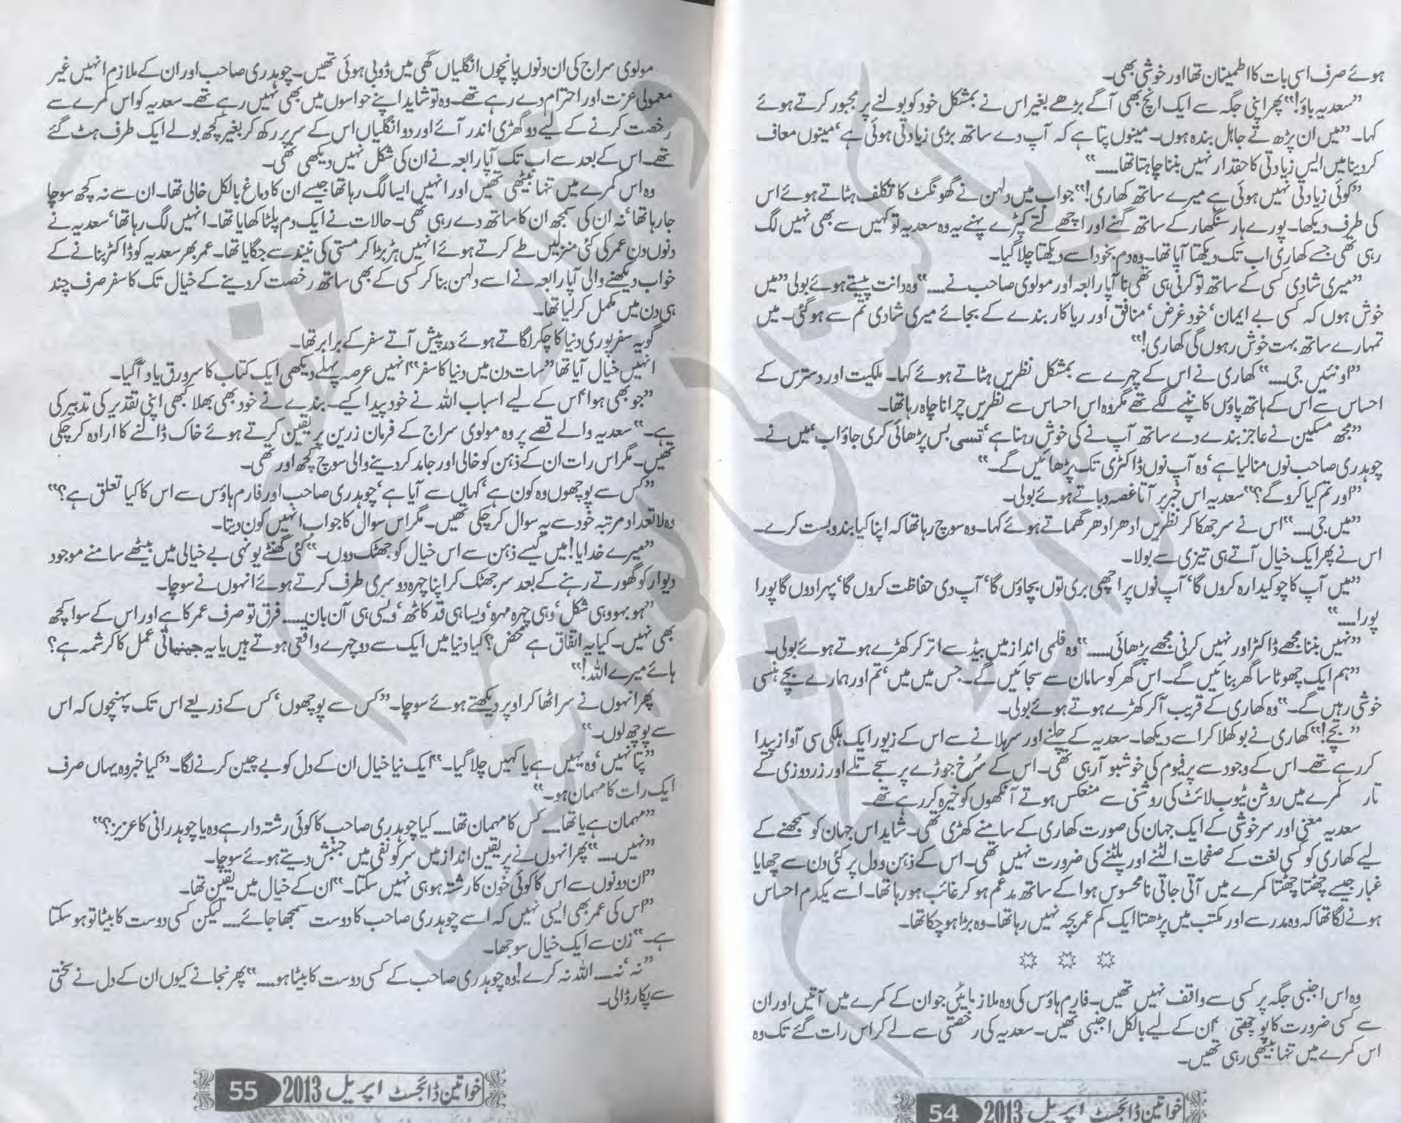 ہوئے صرف اسی بات کا اطمینان تھا اور خوشی بھی۔
”سعدیہ باؤ!“ پھر اپنی جگہ سے ایک انچ بھی آگے بڑھے بغیر اس نے بمشکل خود کو بولنے پر مجبور کرتے ہوئے
کہا۔ ”میں ان پڑھ تے جاہل بندہ ہوں۔ مینوں پتا ہے کہ آپ دے ساتھ بڑی زیادتی ہوئی ہے‘ مینوں معاف
کر دینا میں ایس زیادتی کا حقدار نہیں بننا چاہتا تھا۔۔۔۔“
”کوئی زیادتی نہیں ہوئی ہے میرے ساتھ کھاری!“ جواب میں دلہن نے گھونگٹ کا تکلف ہٹاتے ہوئے اس
کی طرف دیکھا۔ پورے ہار سنگھار کے ساتھ گہنے اور اچھے لتے کپڑے پہنے یہ وہ سعدیہ تو کہیں سے بھی نہیں لگ
رہی تھی جسے کھاری اب تک دیکھتا آیا تھا۔ وہ دم بخود اسے دیکھتا چلا گیا۔
”میری شادی کسی کے ساتھ تو کرنی ہی تھی نا آپا رابعہ اور مولوی صاحب نے۔۔۔۔“ وہ دانت پیستے ہوئے بولی ”میں
خوش ہوں کہ کسی بے ایمان‘ خود غرض‘ منافق اور ریاکار بندے کے بجائے میری شادی تم سے ہوگئی۔ میں
تمہارے ساتھ بہت خوش رہوں گی کھاری!“
”او نئیں جی۔۔۔۔“ کھاری نے اس کے چہرے سے بمشکل نظریں ہٹاتے ہوئے کہا۔ ملکیت اور دسترس کے
احساس سے اس کے ہاتھ پاؤں کانپنے لگے تھے مگر وہ اس احساس سے نظریں چرانا چاہ رہا تھا۔
”مجھ مسکین نے عاجز بندے دے ساتھ آپ نے کی خوش رہنا ہے‘ تسی بس پڑھائی کری جاؤ اب‘ میں نے۔
چوہدری صاحب نوں منا لیا ہے‘ وہ آپ نوں ڈاکٹری تک پڑھائیں گے۔“
”اور تم کیا کرو گے؟“ سعدیہ اس خبر پر آتا غصہ دباتے ہوئے بولی۔
”میں جی۔۔۔۔“ اس نے سر جھکا کر نظریں ادھر ادھر گھماتے ہوئے کہا۔ وہ سوچ رہا تھا کہ اپنا کیا بندوبست کرے۔
اس نے پھر ایک خیال آتے ہی تیزی سے بولا۔
”میں آپ کا چوکیدارہ کروں گا‘ آپ نوں ہر اچھی بری توں بچاؤں گا‘ آپ دی حفاظت کروں گا‘ پہرا دوں گا پورا
پورا۔۔۔۔“
”نہیں بننا مجھے ڈاکٹر اور نہیں کرنی مجھے پڑھائی۔۔۔۔“ وہ فلمی انداز میں بیڈ سے اتر کر کھڑے ہوتے ہوئے بولی۔
”ہم ایک چھوٹا سا گھر بنائیں گے۔ اس گھر کو سامان سے سجائیں گے۔ جس میں میں‘ تم اور ہمارے بچے ہنسی
خوشی رہیں گے۔“ وہ کھاری کے قریب آ کر کھڑے ہوتے ہوئے بولی۔
”بچے!“ کھاری نے بوکھلا کر اسے دیکھا۔ سعدیہ کے چلنے اور سر ہلانے سے اس کے زیور ایک ہلکی سی آواز پیدا
کر رہے تھے۔ اس کے وجود سے پرفیوم کی خوشبو آ رہی تھی۔ اس کے سُرخ جوڑے پر سجے تلے اور زردوزی کے
تار کمرے میں روشن ٹیوب لائٹ کی روشنی سے منعکس ہوتے آنکھوں کو خیرہ کر رہے تھے۔
سعدیہ معنی اور سرخوشی کے ایک جہان کی صورت کھاری کے سامنے کھڑی تھی۔ شاید اس جہان کو سمجھنے کے
لیے کھاری کو کسی لغت کے صفحات الٹنے اور پلٹنے کی ضرورت نہیں تھی۔ اس کے ذہن و دل پر کئی دن سے چھایا
غبار جیسے چھٹتا چھٹتا کمرے میں آتی جاتی نامحسوس ہوا کے ساتھ مدغم ہو کر غائب ہو رہا تھا۔ اسے یکدم احساس
ہونے لگا تھا کہ وہ مدرسے اور مکتب میں پڑھتا ایک کم عمر بچہ نہیں رہا تھا۔ وہ بڑا ہو چکا تھا۔
وہ اس اجنبی جگہ پر کسی سے واقف نہیں تھیں۔ فارم ہاؤس کی وہ ملازمائیں جو ان کے کمرے میں آتیں اور ان
سے کسی ضرورت کا پوچھتی ان کے لیے بالکل اجنبی تھیں۔ سعدیہ کی رخصتی سے لے کر اس رات گئے تک وہ
اس کمرے میں تنہا بیٹھی رہی تھیں۔
خواتین ڈائجسٹ اپریل 2013 54
مولوی سراج کی ان دنوں پانچوں انگلیاں گھی میں ڈوبی ہوئی تھیں۔ چوہدری صاحب اور ان کے ملازم انہیں غیر
معمولی عزت اور احترام دے رہے تھے۔ وہ تو شاید اپنے حواسوں میں بھی نہیں رہے تھے۔ سعدیہ کو اس کمرے سے
رخصت کرنے کے لیے دو گھڑی اندر آئے اور دو انگلیاں اس کے سر پر رکھ کر بغیر کچھ بولے ایک طرف ہٹ گئے
تھے۔ اس کے بعد سے اب تک آپا رابعہ نے ان کی شکل نہیں دیکھی تھی۔
وہ اس کمرے میں تنہا بیٹھی تھیں اور انہیں ایسا لگ رہا تھا جیسے ان کا دماغ بالکل خالی تھا۔ ان سے نہ کچھ سوچا
جا رہا تھا‘ نہ ان کی سمجھ ان کا ساتھ دے رہی تھی۔ حالات نے ایک دم پلٹا کھایا تھا۔ انہیں لگ رہا تھا‘ سعدیہ نے
دنوں دن عمر کی کئی منزلیں طے کرتے ہوئے انہیں ہڑبڑا کر مستی کی نیند سے جگایا تھا۔ عمر بھر سعدیہ کو ڈاکٹر بنانے کے
خواب دیکھنے والی آپا رابعہ نے اسے دلہن بنا کر کسی کے بھی ساتھ رخصت کر دینے کے خیال تک کا سفر صرف چند
ہی دن میں مکمل کر لیا تھا۔
گویہ سفر پوری دنیا کا چکر لگاتے ہوئے درپیش آتے سفر کے برابر تھا۔
انہیں خیال آیا تھا ”سات دن میں دنیا کا سفر“ انہیں عرصہ پہلے دیکھی ایک کتاب کا سرورق یاد آ گیا۔
”جو بھی ہوا‘ اس کے لیے اسباب اللہ نے خود پیدا کیے۔ بندے نے خود بھی بھلا کبھی اپنی تقدیر کی تدبیر کی
ہے۔“ سعدیہ والے قصے پر وہ مولوی سراج کے فرمان زریں پر یقین کرتے ہوئے خاک ڈالنے کا ارادہ کر چکی
تھیں۔ مگر اس رات ان کے ذہن کو خالی اور جامد کر دینے والی سوچ کچھ اور تھی۔
”کس سے پوچھوں وہ کون ہے‘ کہاں سے آیا ہے‘ چوہدری صاحب اور فارم ہاؤس سے اس کا کیا تعلق ہے؟“
وہ لاتعداد مرتبہ خود سے یہ سوال کر چکی تھیں۔ مگر اس سوال کا جواب انہیں کون دیتا۔
”میرے خدایا! میں کیسے ذہن سے اس خیال کو جھٹک دوں۔“ کئی گھنٹے یونہی بے خیالی میں بیٹھے سامنے موجود
دیوار کو گھورتے رہنے کے بعد سر جھٹک کر اپنا چہرہ دوسری طرف کرتے ہوئے انہوں نے سوچا۔
”ہوبہو وہی شکل‘ وہی چہرہ مہرہ‘ ویسا ہی قد کاٹھ‘ ویسی ہی آن بان۔۔۔۔ فرق تو صرف عمر کا ہے اور اس کے سوا کچھ
بھی نہیں۔ کیا یہ اتفاق ہے محض؟ کیا دنیا میں ایک سے دو چہرے واقعی ہوتے ہیں یا یہ جینیاتی عمل کا کرشمہ ہے؟
ہائے میرے اللہ!“
پھر انہوں نے سر اٹھا کر اوپر دیکھتے ہوئے سوچا۔ ”کس سے پوچھوں‘ کس کے ذریعے اس تک پہنچوں کہ اس
سے پوچھ لوں۔“
”پتا نہیں‘ وہ یہیں ہے یا کہیں چلا گیا۔“ ایک نیا خیال ان کے دل کو بے چین کرنے لگا۔ ”کیا خبر وہ یہاں صرف
ایک رات کا مہمان ہو۔“
”مہمان ہے یا تھا۔۔۔۔ کس کا مہمان تھا۔۔۔۔ کیا چوہدری صاحب کا کوئی رشتہ دار ہے وہ یا چوہدرانی کا عزیز؟“
”نہیں۔۔۔۔“ پھر انہوں نے پر یقین انداز میں سر کو نفی میں جنبش دیتے ہوئے سوچا۔
”ان دونوں سے اس کا کوئی خون کا رشتہ ہو ہی نہیں سکتا۔“ ان کے خیال میں یقین تھا۔
”اس کی عمر بھی ایسی نہیں کہ اسے چوہدری صاحب کا دوست سمجھا جائے۔۔۔۔ لیکن کسی دوست کا بیٹا تو ہو سکتا
ہے۔“ زن سے ایک خیال سوجھا۔
”نہ‘ نہ۔۔۔۔ اللہ نہ کرے! وہ چوہدری صاحب کے کسی دوست کا بیٹا ہو۔۔۔۔“ پھر نجانے کیوں ان کے دل نے سختی
سے پکار ڈالی۔
خواتین ڈائجسٹ اپریل 2013 55